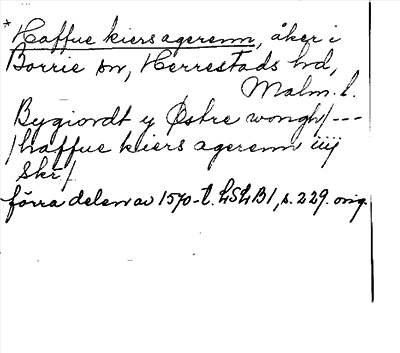 * Haffue kiersagerenn, åker i
Borrie sn, Herrestads hd,
Malm. l.
Bygiordt y Østre wongh/---
/haffue kiers agerenn iiij
Skr/
förra delen av 1570-t. LSLB1, s. 229. orig.